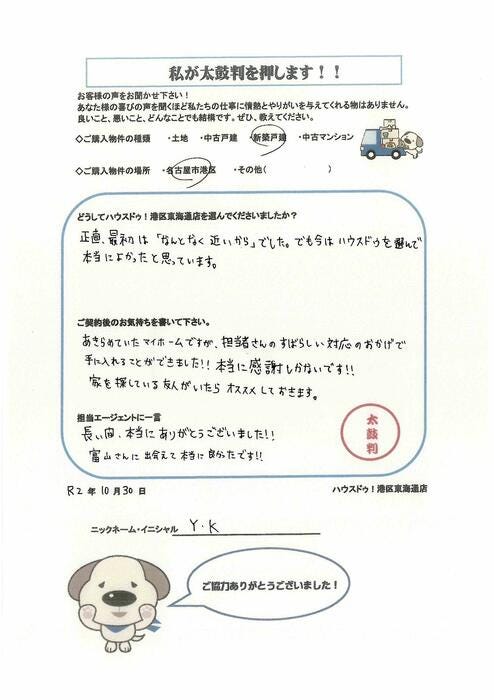 私が太鼓判を押します！！
お客様の声をお聞かせ下さい！
あなた様の喜びの声を聞くほど私たちの仕事に情熱とやりがいを与えてくれる物はありません。
良いこと、悪いこと、どんなことでも結構です。ぜひ、教えてください。
◇ご購入物件の種類 ・土地 ・中古戸建 ・新築戸建 ・中古マンション
◇ご購入物件の場所 ・名古屋市港区 ・その他( )
どうしてハウスドゥ！港区東海通店を選んでくださいましたか？
正直、最初は「なんとなく近いから」でした。でも今はハウスドゥを選んで
本当によかったと思っています。
ご契約後のお気持ちを書いて下さい。
あきらめていたマイホームですが、担当さんのすばらしい対応のおかげで
手に入れることができました!!本当に感謝しかないです!!
家を探している友人がいたらオススメしておきます。
担当エージェントに一言
長い間、本当にありがとうございました!!
富山さんに出会えて本当に良かったです!!
太鼓判
R2年10月30日
ハウスドゥ！港区東海通店
ニックネーム・イニシャル Y.K
ご協力ありがとうございました！